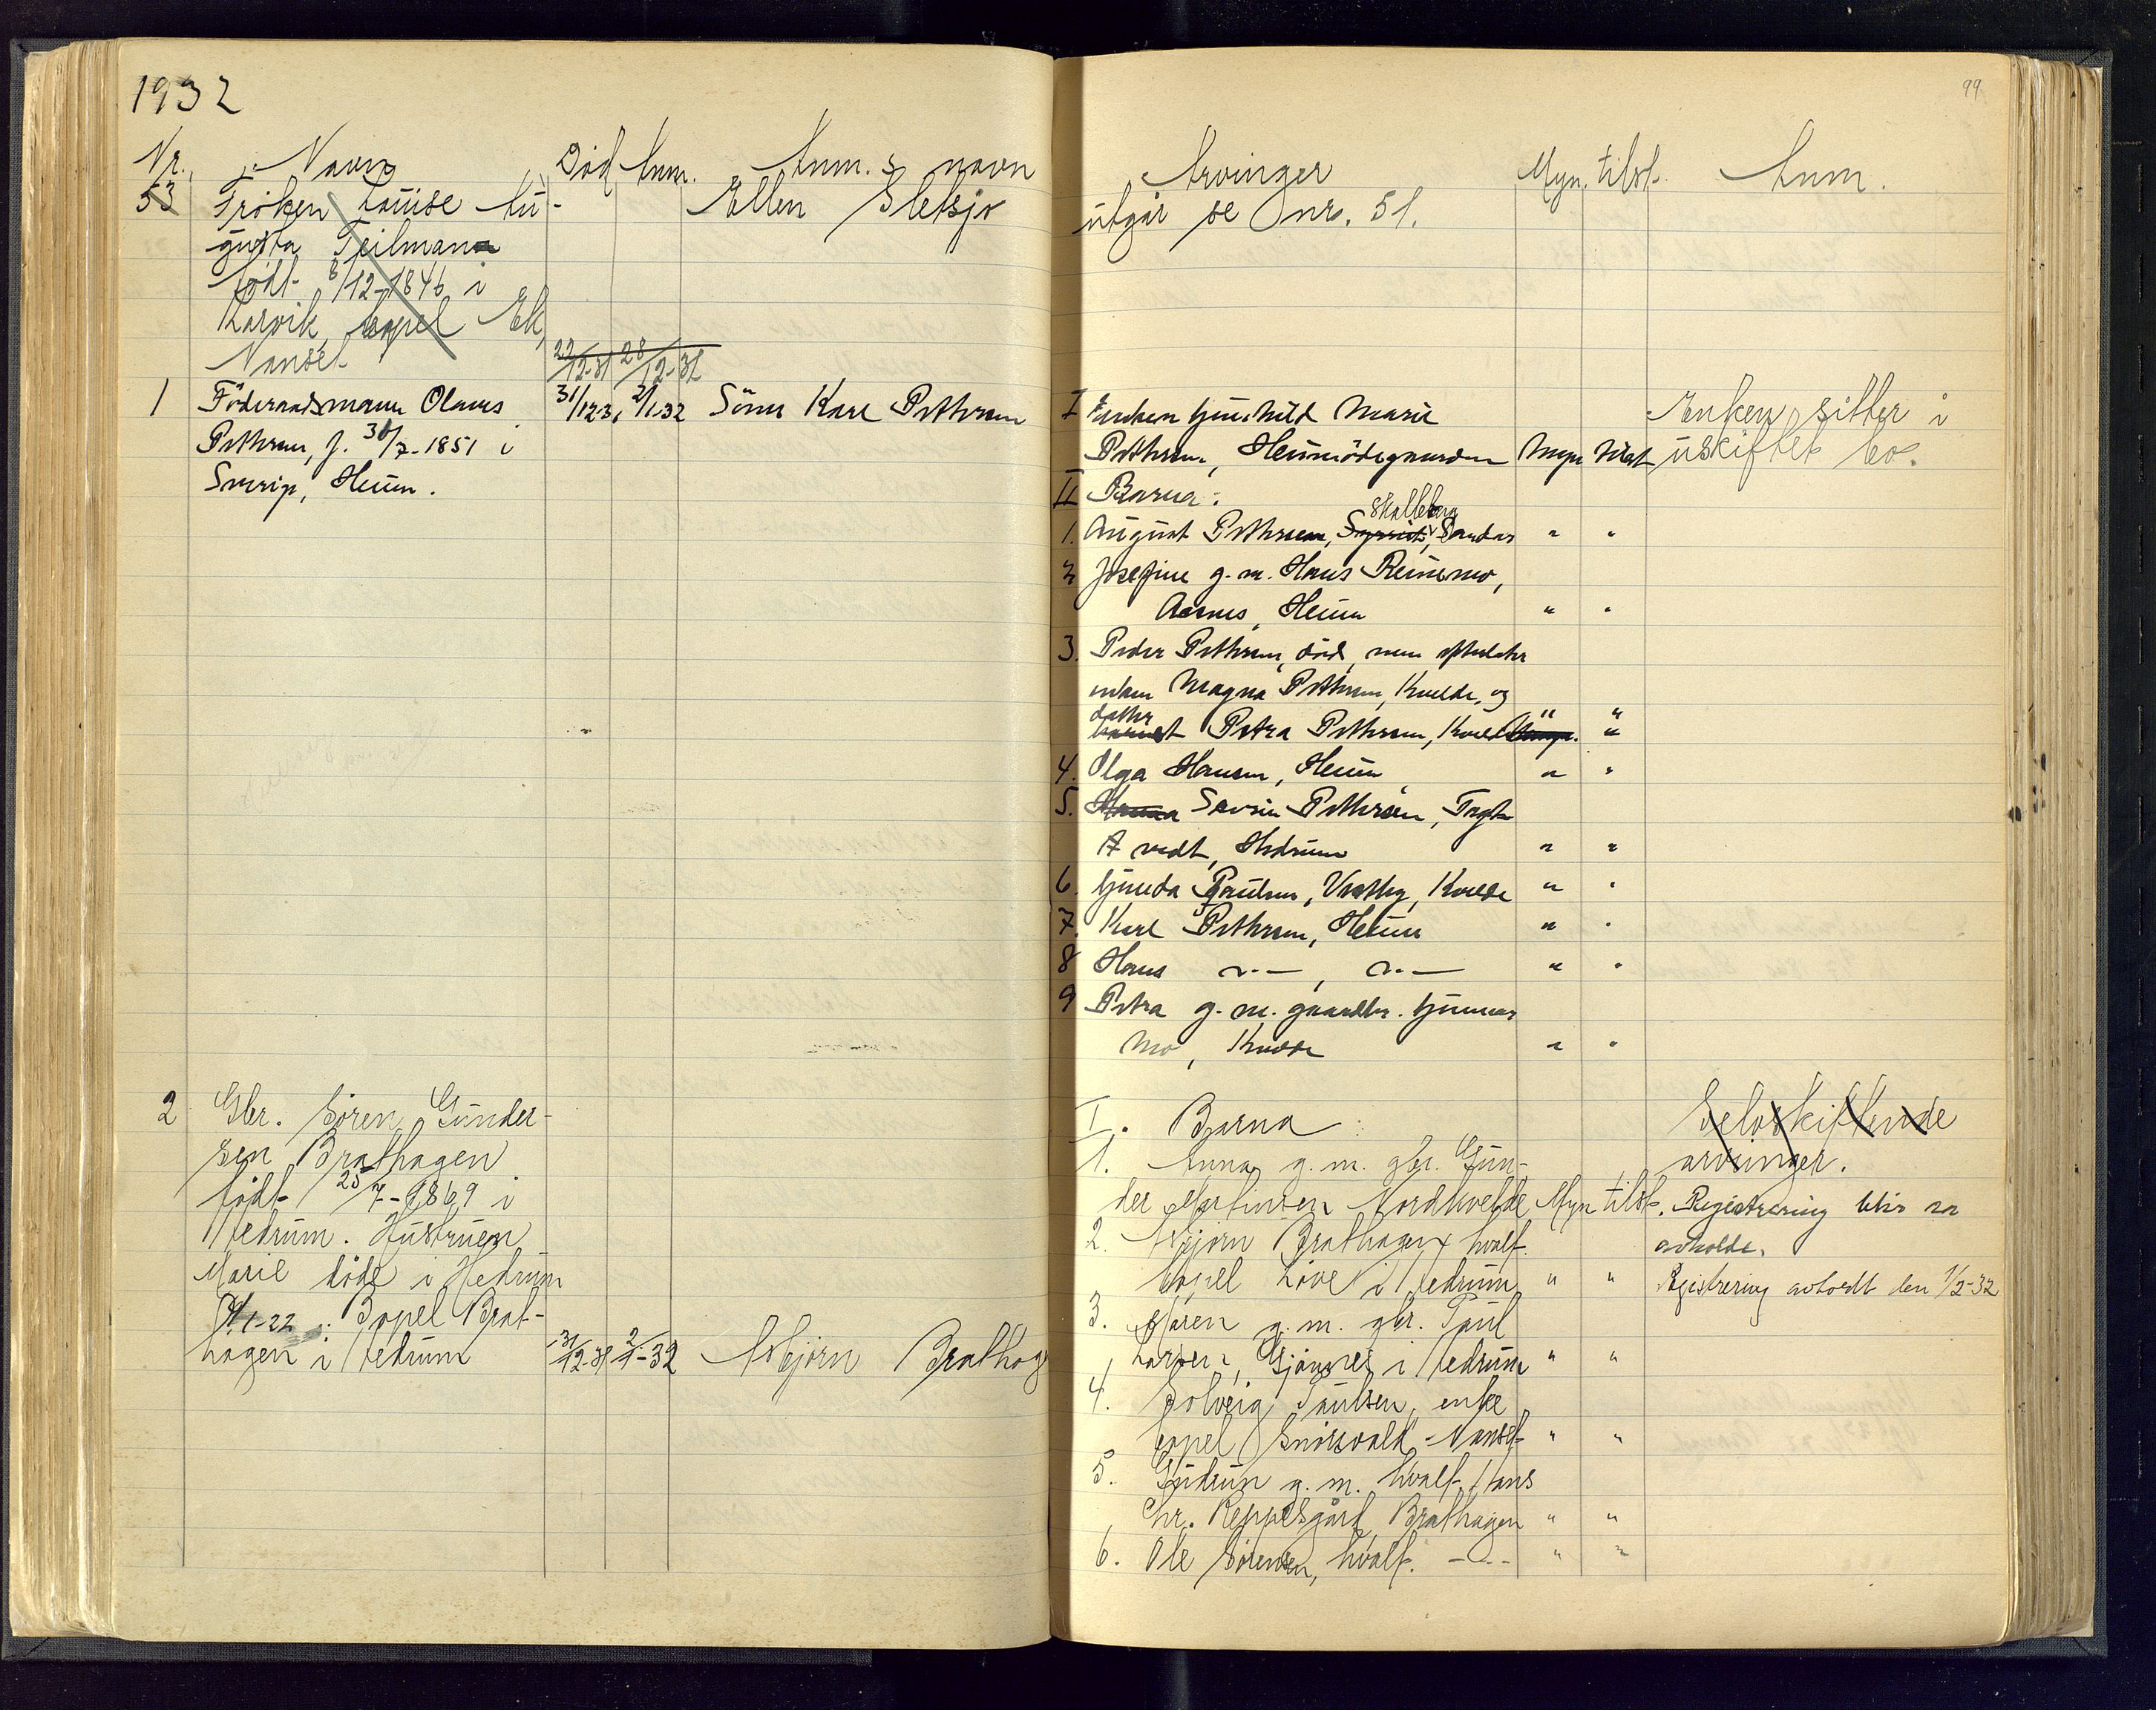 1932
Nr. Navn Død Anm. Anm.s navn
53 Frøken Louise Au-
gusta Teilmann
født 8/12-1846 i
Larvik, bopel Ek,
Nanset 22/12-31 28/12-31 Ellen Sletsjø
1 Föderaadsmann Olaves
Petersen, f. 30/7-1851 i
Sverige, Heum. 31/12-31 2/1-32 Sönn Karl Pettersen
2 Gbr. Søren Gunder-
sen Brathagen
født 25/7-1869 i
Hedrum. Hustruen
Marie døde i Hedrum
1-22. Bopel Brat-
hagen i Hedrum 31/12-31 2/1-32 Asbjørn Brathag
99
Arvinger Myn. tilst. Anm.
utgår se nr. 51.
I Enken Gunhild Marie
Pettersen, Heumödegaarden Myn tilst
Enken sitter i
uskiftet bo.
II Barna:
1. August Pettersen, Skalleberg, Sandar " "
2 Josefine g.m. Hans Reinsmo,
Aasnes, Heum " "
3. Peder Pettersen, död, men efterlater
enken Magna Pettersen, Kvelde, og " "
datter Petra Pettersen, Kvelde "
4. Olga Hansen, Heum " "
5. Severin Pettersen,
Hedrum " "
6. Gunda Paulsen, Kvelde " "
7. Karl Pettersen, Heum " "
8 Hans —"—, —"— " "
9 Petra g.m. gaardbr. Gunnar
Mo, Kvelde " "
I. Barna:
1. Anna g.m. gbr. Gun-
der Martinsen Nordkvelde Myn tilst.
2. Asbjørn Brathagen hvalf.
bopel Løve i Hedrum " "
3. Maren g.m. gbr. Paul
Larsen, Gjønnes i Hedrum " "
4. Solveig Paulsen, enke
bopel Nanset " "
5. Gudrun g.m. hvalf. Hans
Chr. Reppesgård, Brathagen " "
6. Ole Sørensen, hvalf. —"— " "
Selvskiftende
arvinger.
Registrering blir at
avholde.
Registrering avholdt den 1/2-32